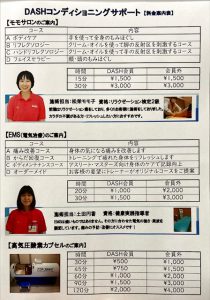 DASHコンディショニングサポート【料金案内書】
【モモサロンのご案内】
コース 内容
A ボディケア 手を使って全身のもみほぐし
B リフレクソロジー クリーム・オイルを使って脚の反射区を刺激するコース
C ハンドリフレクソロジー クリーム・オイルを使って手の反射区を刺激するコース
D フェイスセラピー 顔・頭のもみほぐし
時間 DASH会員 会員外
15分 ¥1,500 ¥1,500
30分 ¥3,000 ¥3,000
資格:リラクゼーション検定2級
【EMS(電気治療)のご案内】
コース 内容
A 痛み改善コース 身体の気になる痛みを改善します
B からだ回復コース トレーニングで疲れた身体をリフレッシュします
C コンディショニングコース アスリート・マスターズ向け身体のケアで記録向上
D オーダーメイド お客様の要望にトレーナーがオリジナルコースをご提案
時間 DASH会員 会員外
20分 ¥1,000 ¥2,000
30分 ¥1,500 ¥3,000
施術担当:土田円香 資格:健康運動指導者
【高気圧酸素カプセルのご案内】
時間 DASH会員 会員外
50分 ¥500 ¥1,000
65分 ¥750 ¥1,500
80分 ¥1,000 ¥2,000
90分 ¥1,500 ¥3,000
120分 ¥2,000 ¥4,000